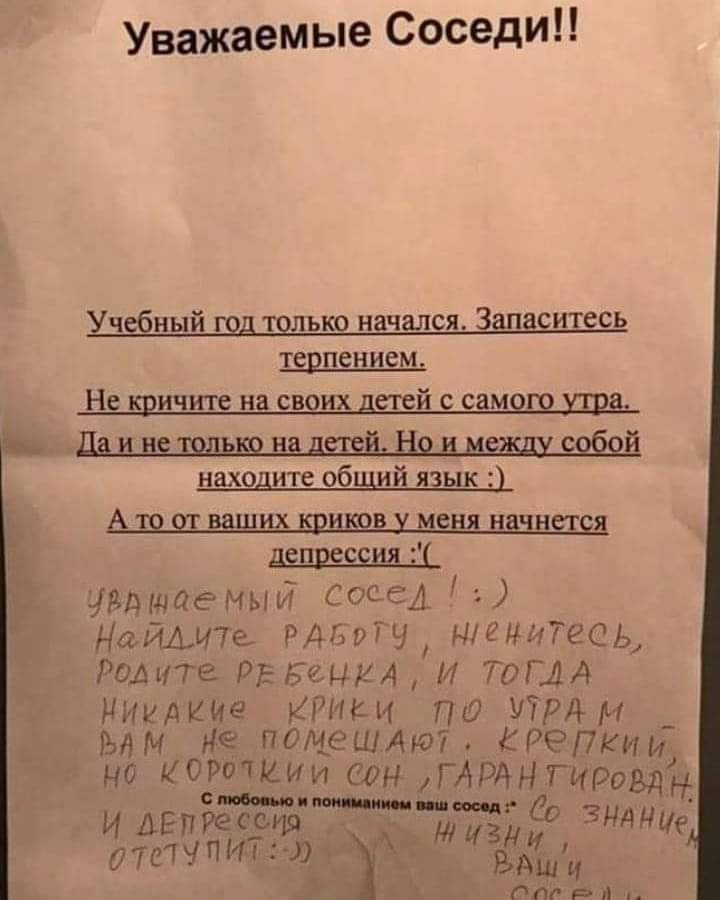 Уважаемые Соседи!!
Учебный год только начался. Запаситесь
терпением.
Не кричите на своих детей с самого утра.
Да и не только на детей. Но и между собой
находите общий язык :)
А то от ваших криков у меня начнется
депрессия :'(
Уважаемый сосед! :)
Найдите работу, женитесь,
родите ребенка, и тогда
никакие крики по утрам
вам не помешают. Крепкий,
но короткий сон, гарантирован.
С любовью и пониманием ваш сосед :*
И депрессия
отступит :-))
Со знанием
жизни,
ваши
соседи